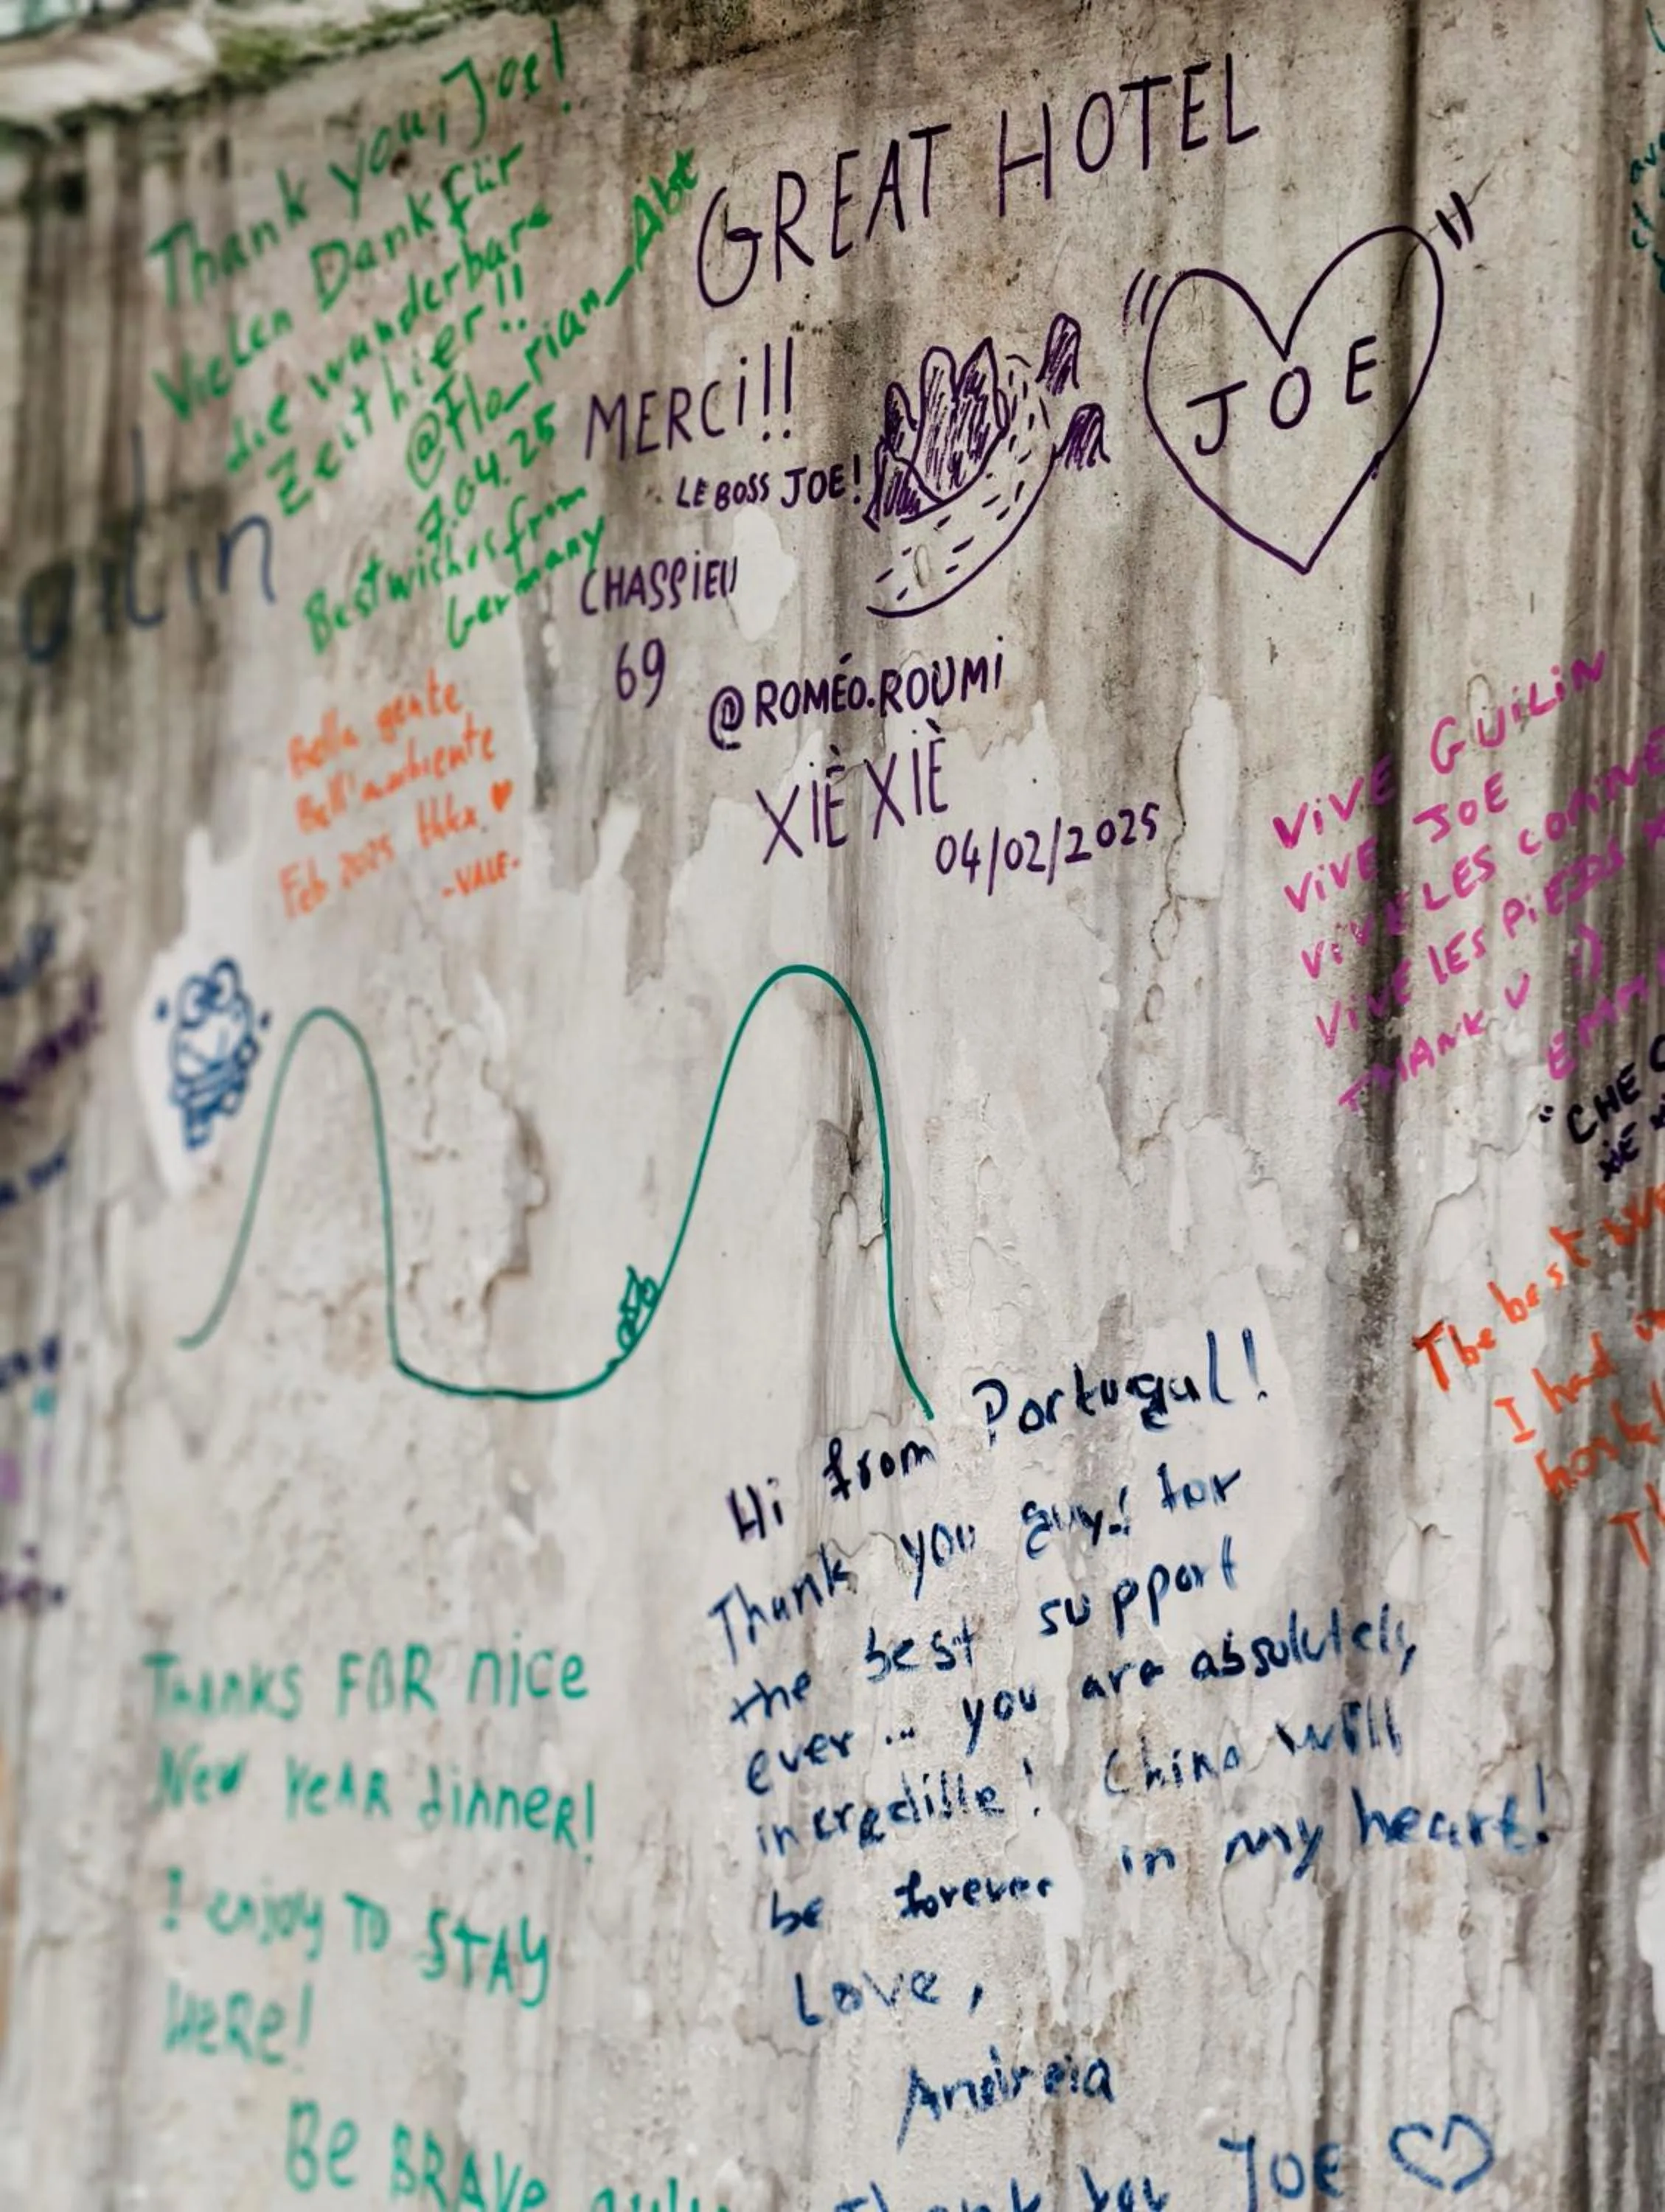 Thank you, Joe!
Vielen Dank für
die wunderbare
Zeit hier!!
@flo_rian_Abt
7.04.25
Best wishes from
Germany
GREAT HOTEL
MERCi!!
LE BOSS JOE!
JOE
CHASSIEU
69
@ROMÉO.ROUMi
XIÈ XIÈ
04/02/2025
Bella gente
Bell'ambiente
Feb 2025
-VALE-
ViVE GUiLiN
ViVE JOE
ViVE LES
ViVE LES PiEDS
THANK U :)
"CHE
XIE
The best
I had
Hi from Portugal!
Thank you guys for
the best support
ever... you are absolutely
incredible! China will
be forever in my heart!
Love,
Andreia
Thank you JOE
THANKS FOR nice
New YeAR dinneR!
I enjoy TO STAY
HeRe!
Be BRAVe